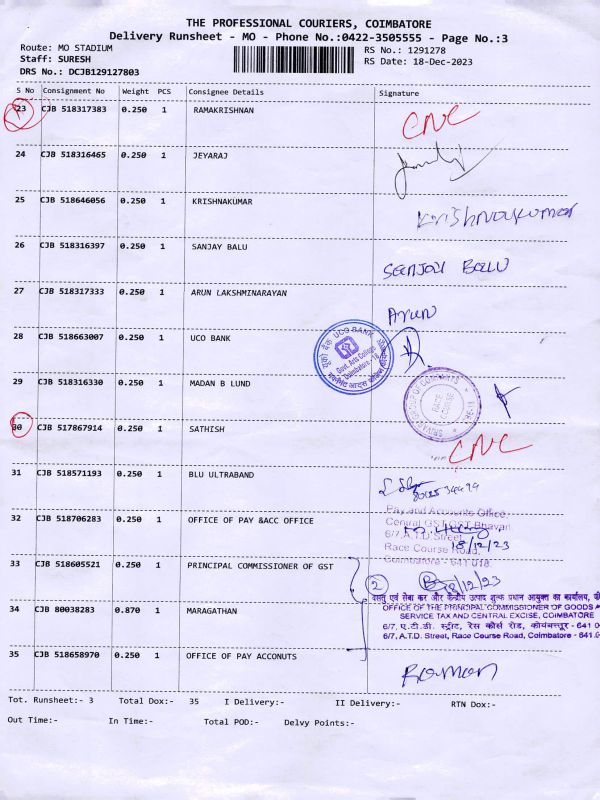 THE PROFESSIONAL COURIERS, COIMBATORE
Delivery Runsheet - MO - Phone No.:0422-3505555 - Page No.:3
Route: MO STADIUM RS No.: 1291278
Staff: SURESH RS Date: 18-Dec-2023
DRS No.: DCJB129127803
S No Consignment No Weight PCS Consignee Details Signature
23 CJB 518317383 0.250 1 RAMAKRISHNAN CNC
24 CJB 518316465 0.250 1 JEYARAJ
25 CJB 518646056 0.250 1 KRISHNAKUMAR Krishnakumar
26 CJB 518316397 0.250 1 SANJAY BALU SANJAY BALU
27 CJB 518317333 0.250 1 ARUN LAKSHMINARAYAN Arun
28 CJB 518663007 0.250 1 UCO BANK
यूको बैंक UCO BANK
Govt. Arts College
Coimbatore - 18
29 CJB 518316330 0.250 1 MADAN B LUND
RACE
COURSE
30 CJB 517867914 0.250 1 SATHISH CNC
31 CJB 518571193 0.250 1 BLU ULTRABAND
32 CJB 518706283 0.250 1 OFFICE OF PAY &ACC OFFICE
Pay and Accounts Office
Central GST, GST Bhavan
6/7, A.T.D. Street
Race Course Road,
Coimbatore - 641 018
18/12/23
33 CJB 518605521 0.250 1 PRINCIPAL COMMISSIONER OF GST
2 18/12/23
34 CJB 80038283 0.870 1 MARAGATHAN
वस्तु एवं सेवा कर और केन्द्रीय उत्पाद शुल्क प्रधान आयुक्त का कार्यालय,
OFFICE OF THE PRINCIPAL COMMISSIONER OF GOODS
SERVICE TAX AND CENTRAL EXCISE, COIMBATORE
6/7, ए.टी.डी. स्ट्रीट, रेस कोर्स रोड, कोयंबत्तूर - 641 0
6/7, A.T.D. Street, Race Course Road, Coimbatore - 641 0
35 CJB 518658970 0.250 1 OFFICE OF PAY ACCONUTS Raman
Tot. Runsheet:- 3 Total Dox:- 35 I Delivery:- II Delivery:- RTN Dox:-
Out Time:- In Time:- Total POD:- Delvy Points:-